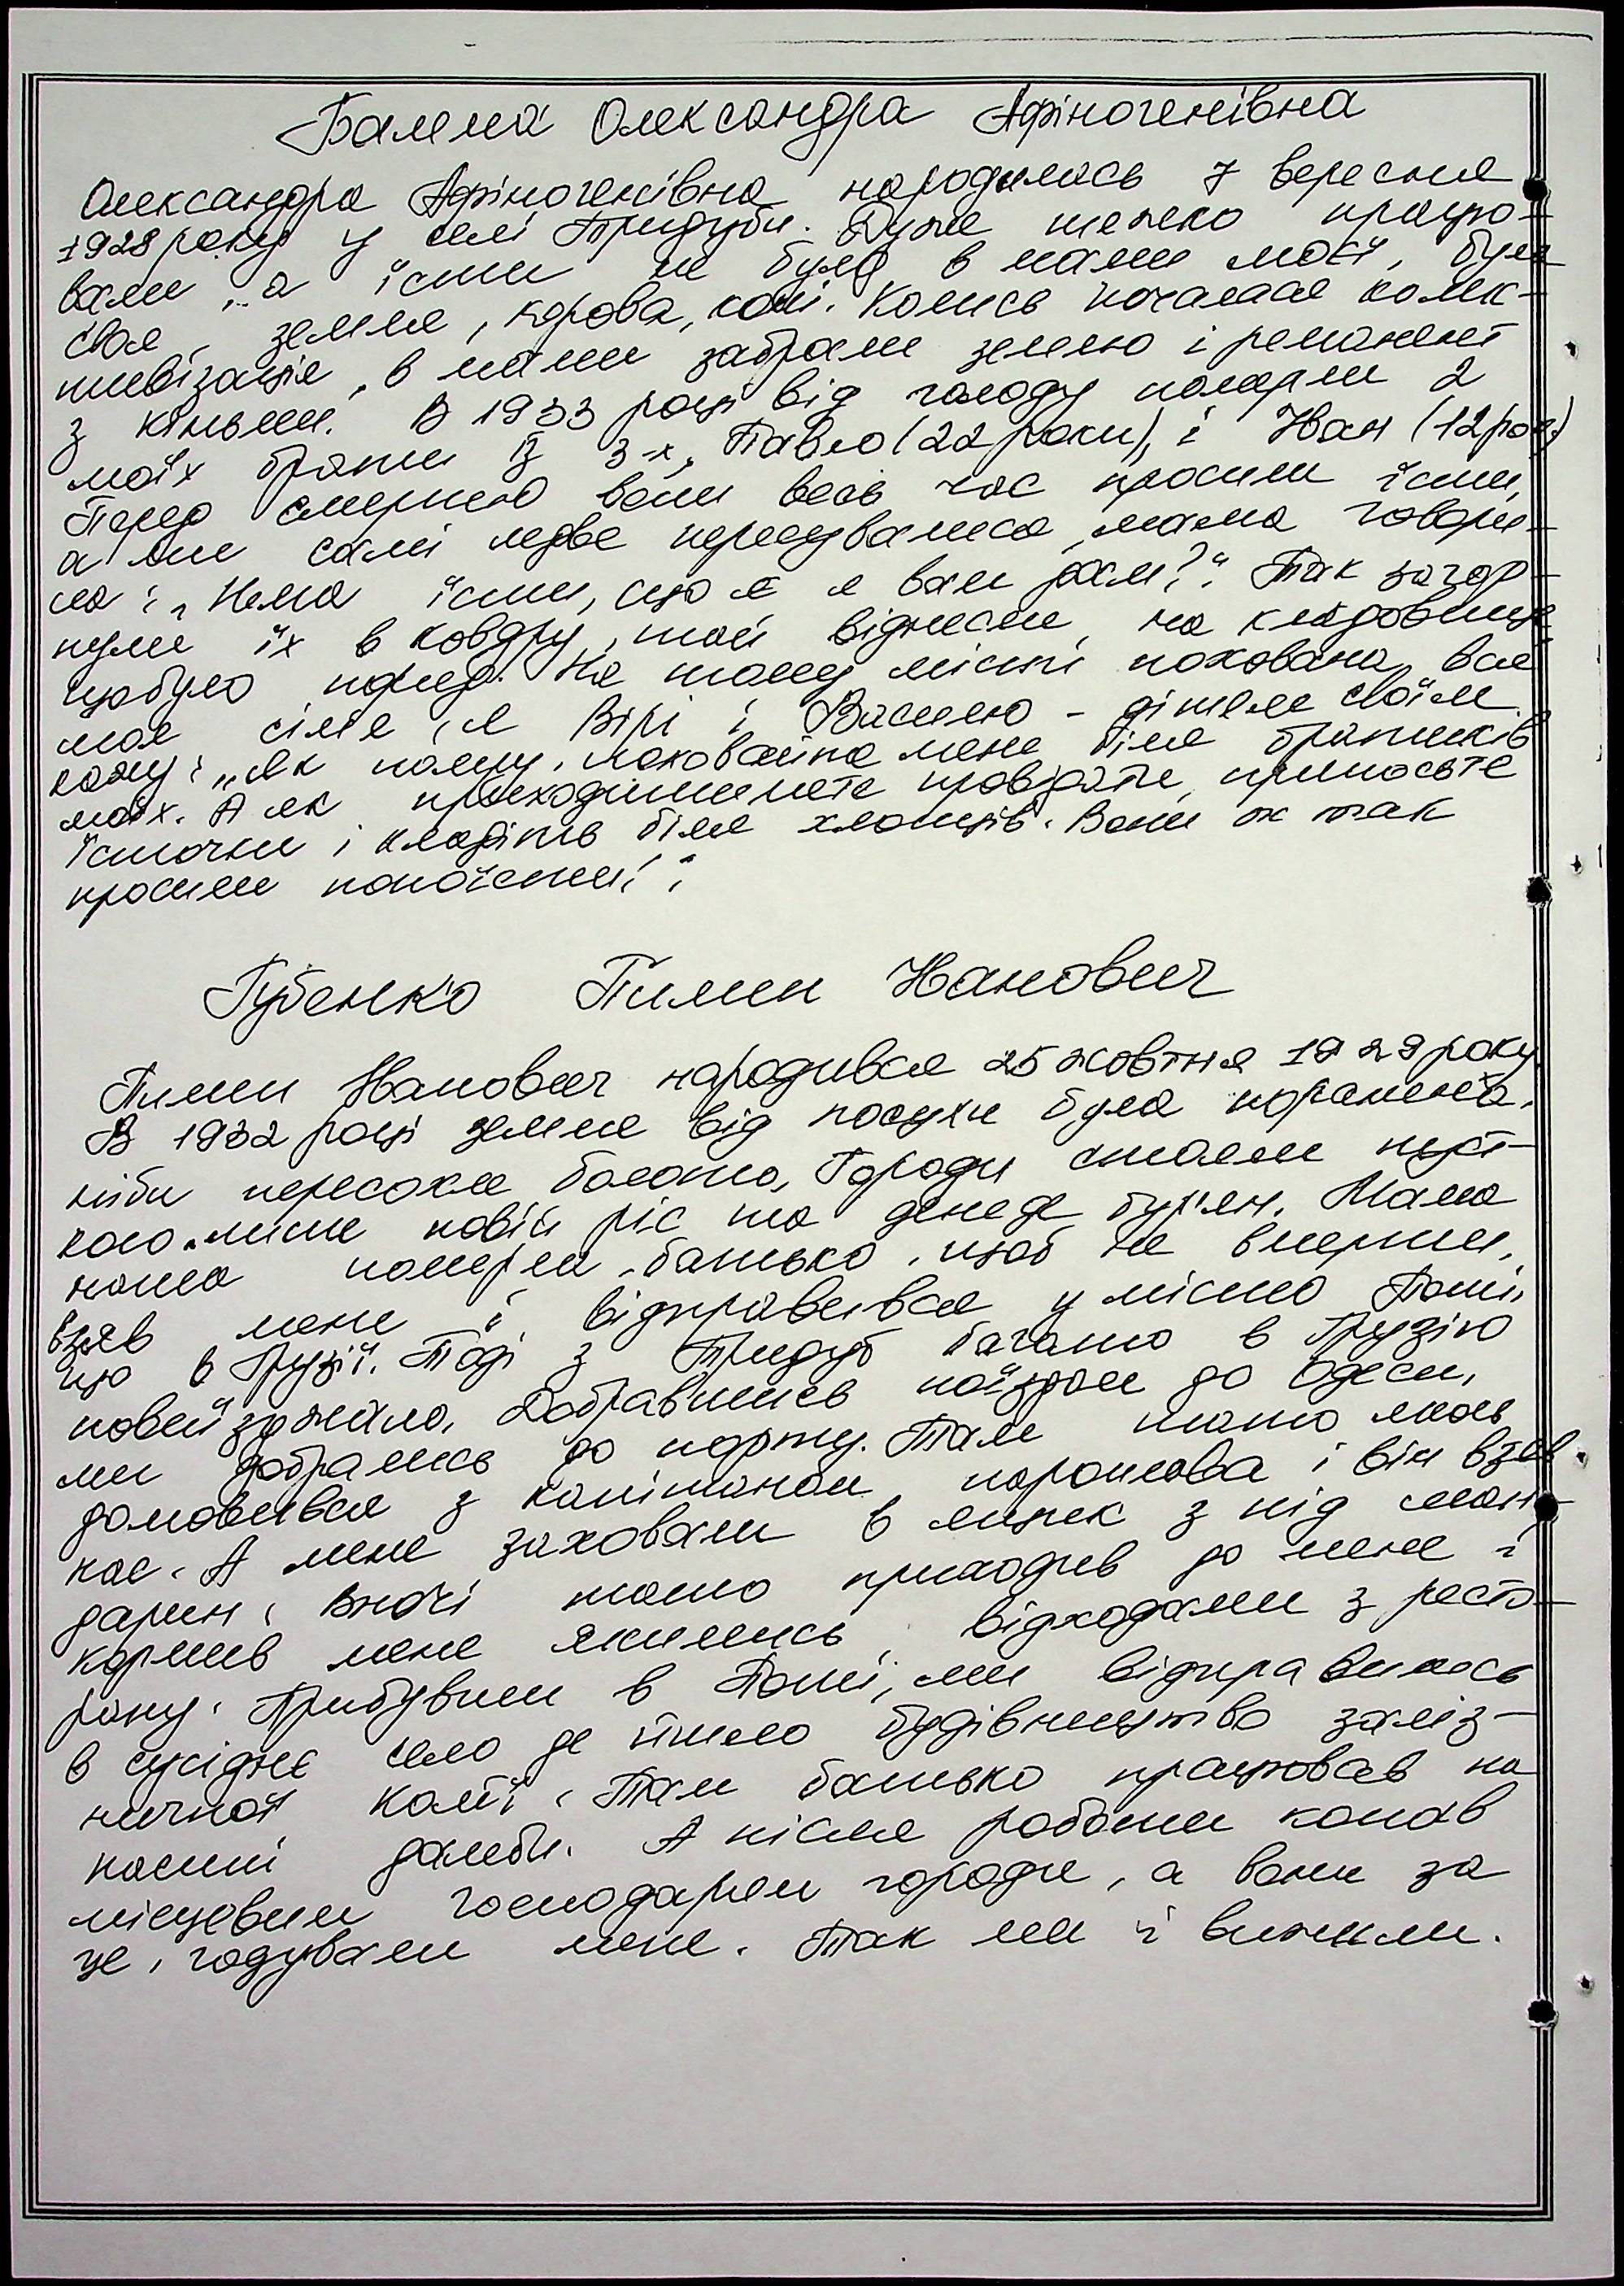 Балема Олександра Афіногенівна
Олександра Афіногенівна народилась 7 вересня
1928 року у селі Тридуби. Дуже тяжко працю-
вали, а їсти не було в мами моєї, була
своя земля, корова, коні. Колись почалася колек-
тивізація, в мами забрали землю і реманент
з кіньми. В 1933 році від голоду померли 2
моїх брати із 3-х, Павло (22 роки), і Иван (12 рок.)
Перед смертю вони весь час просили їсти,
а ми самі ледве пересувались, мама говори-
ла: „Нема їсти, що ж я вам дам?". Так загор-
нули їх в ковдру, той віднесли на кладовище
що було поряд. На тому місті похована вся
моя сім'я, я Вірі і Василю - дітям своїм
кажу: „Як помру, поховайте мене біля братиків
моїх. А як приходитимете провідати, приносьте
їсточки і кладіть біля хлопців. Вони ж так
просили попоїсти!";
Губенко Пимен Иванович
Пимен Иванович народився 25 жовтня 1929 року
В 1932 році земля від посухи була порепана,
ніби пересохле болото, Городи стояли пуст-
кою. лише повій ріс та денеде бур'ян. Мама
наша померла, батько, щоб не вмерти,
взяв мене і відправився у місто Поті,
що в Грузії. Тоді з Тридуб багато в Грузію
повиїзджало. Добравшись поїздом до Одеси,
ми добрались до порту. Там тато якось
домовився з капітаном пароплава і він взяв
нас. А мене заховали в ящик з під ман-
дарин, вночі тато приходив до мене і
кормив мене якимись відходами з ресто-
рану. Прибувши в Поті, ми відправилось
в сусіднє село де йшло будівництво заліз-
ничної колії. Там батько працював на
насипі дамби. А після роботи копав
місцевим господарям городи, а вони за
це, годували мене. Так ми і вижили.